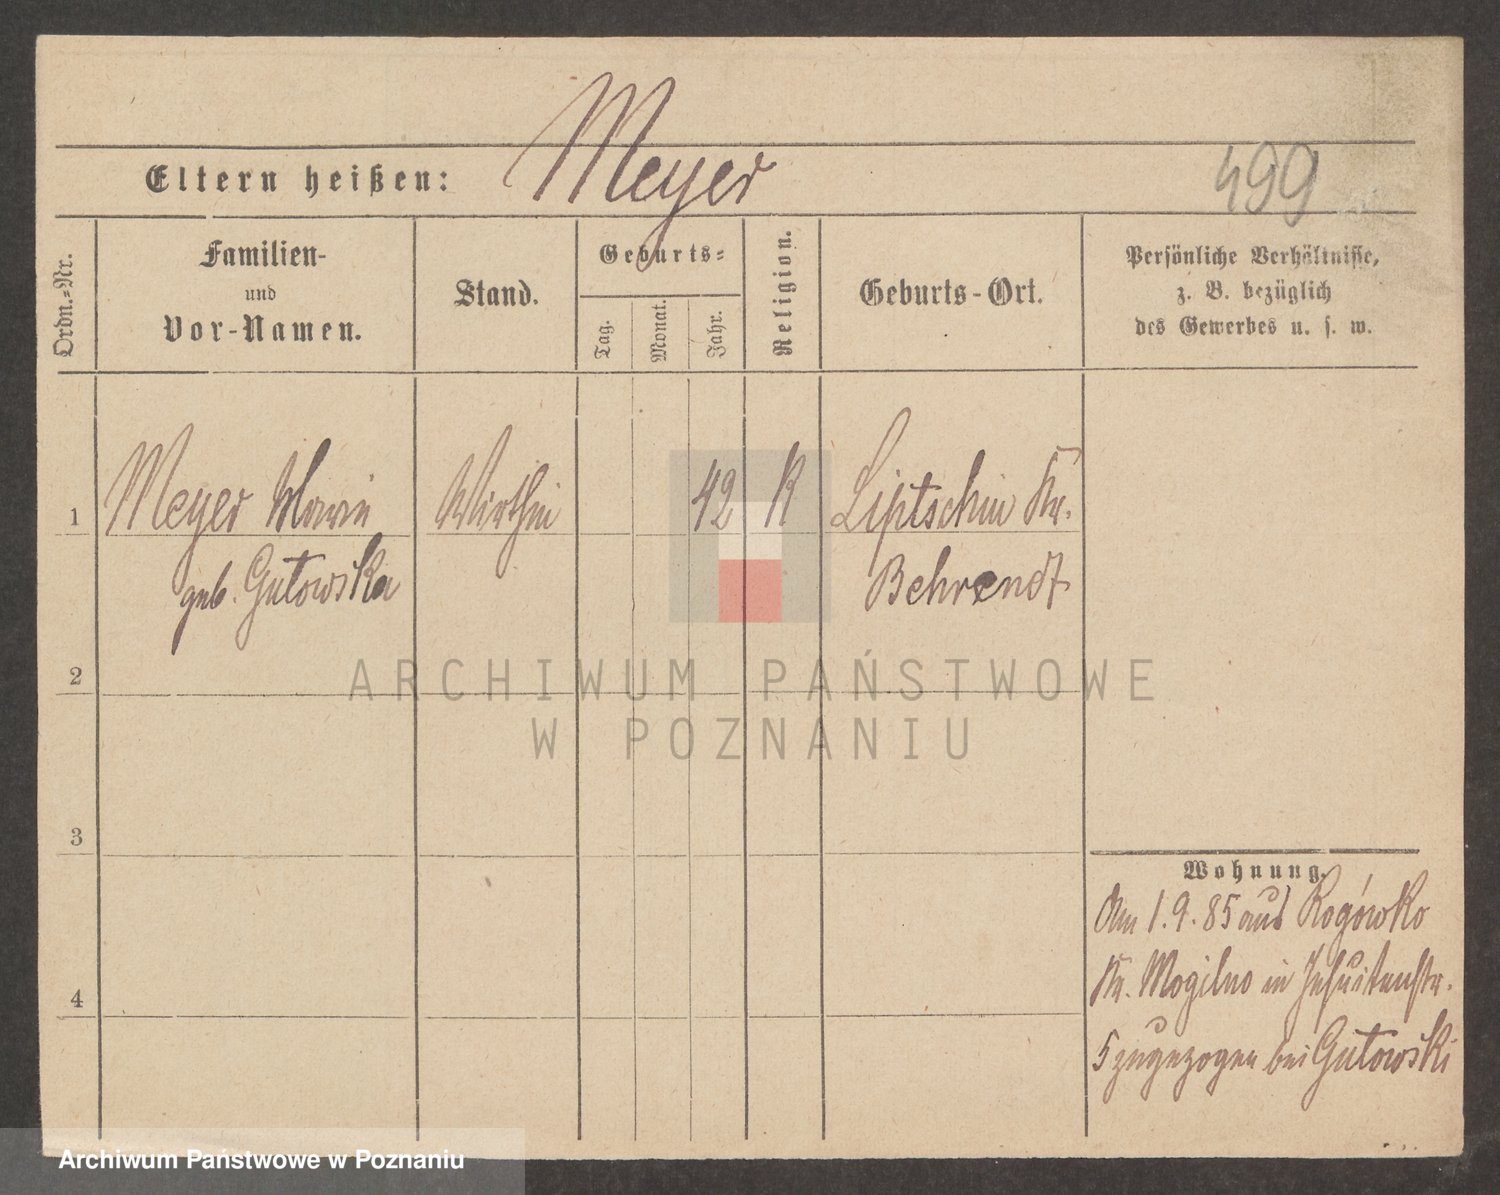 Meyer
Eltern heißen:
499
Ordn.=Nr.
Familien-
und
Vor-Namen.
Stand.
Geburts=
Tag.
Monat.
Jahr.
Religion.
Geburts-Ort.
Persönliche Verhältnisse,
z. B. bezüglich
des Gewerbes u. s. w.
1
Meyer Marie
geb. Gutowska
Wirthin
42
K
Liptschin Kr.
Behrendt
2
3
4
ARCHIWUM PAŃSTWOWE
W POZNANIU
Wohnung.
Am 1.9.85 aus Rogówko
Kr. Mogilno in Jesuitenstr.
5 zugezogen bei Gutowski
Archiwum Państwowe w Poznaniu